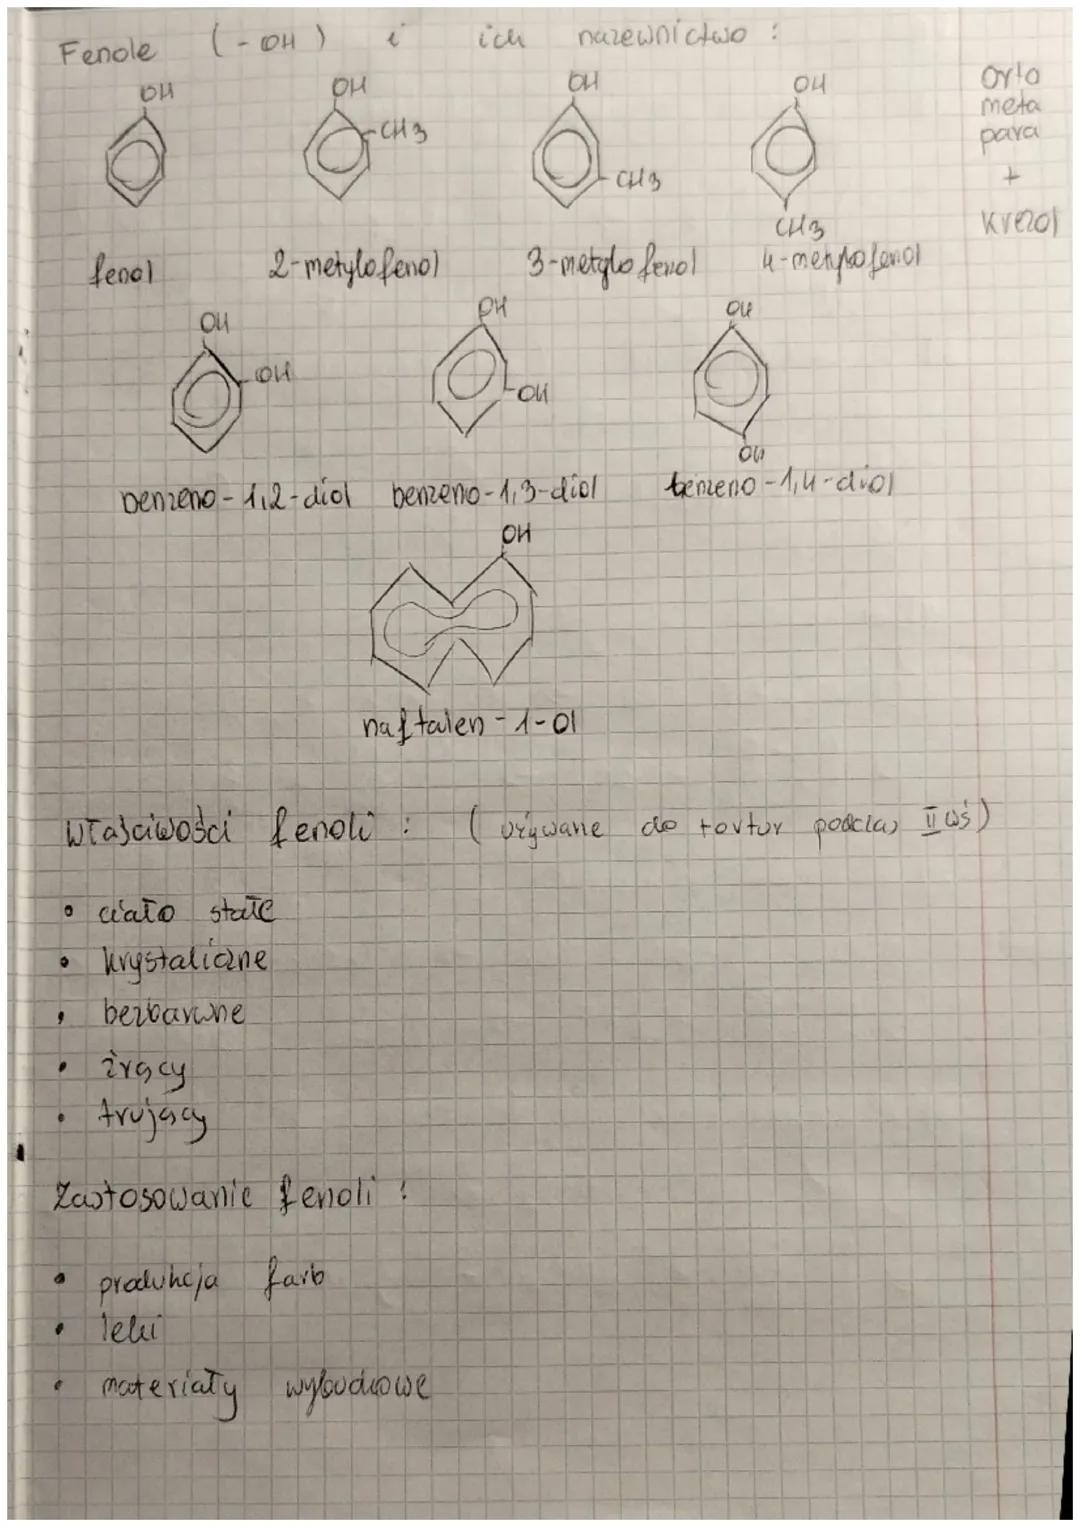 Fenole (-OH) i ich nazewnictwo :
OH OH OH OH
-CH3
-CH3
CH3
orto
meta
para
+
krezol
fenol 2-metylofenol 3-metylofenol 4-metylofenol
OH OH OH
-OH
-OH
OH
benzeno-1,2-diol benzeno-1,3-diol benzeno-1,4-diol
OH
naftalen-1-ol
Właściwości fenoli : (używane do tortur podczas II wś)
• ciało stałe
• krystaliczne
• bezbarwne
• żrący
• trujący
Zastosowanie fenoli :
• produkcja farb
• leki
• materiały wybuchowe